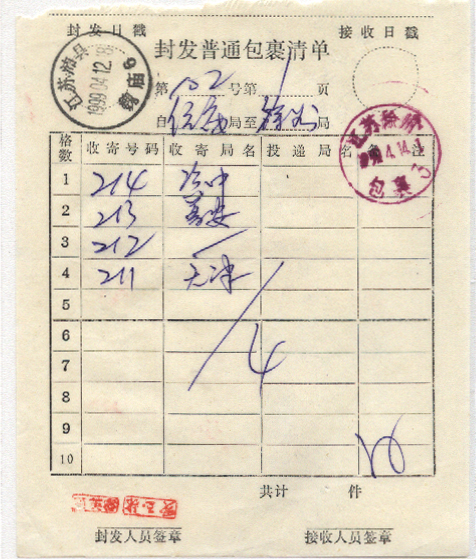 封发日戳
接收日戳
封发普通包裹清单
江苏沛县
1999.04.12.18
魏庙 9
第102号第1页
自 局至徐州局
江苏徐州
4.14
包裹
3
格数 收寄号码 收寄局名 投递局名 注
1 214
2 213
3 212 —
4 211 天津
5
6
7
8
9
10
4
共计 件
封发人员签章
接收人员签章